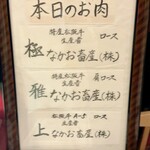 本日のお肉
特産松阪牛 ロース
生産者
極 なかお畜産(株)
特産松阪牛 肩ロース
生産者
雅 なかお畜産(株)
松阪牛 A-5 ロース
生産者
上 なかお畜産(株)